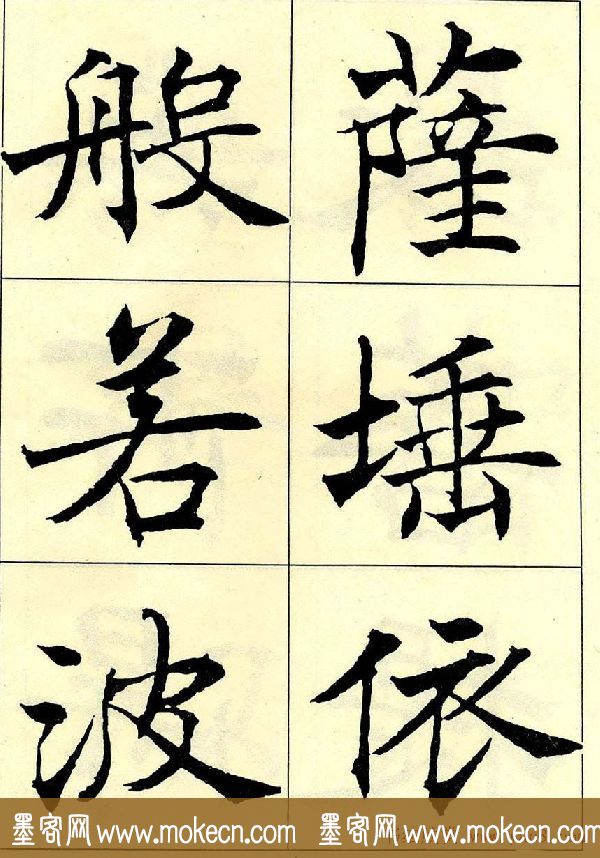 薩埵依
般若波
墨客网 www.mokecn.com 墨客网 www.mokecn.com